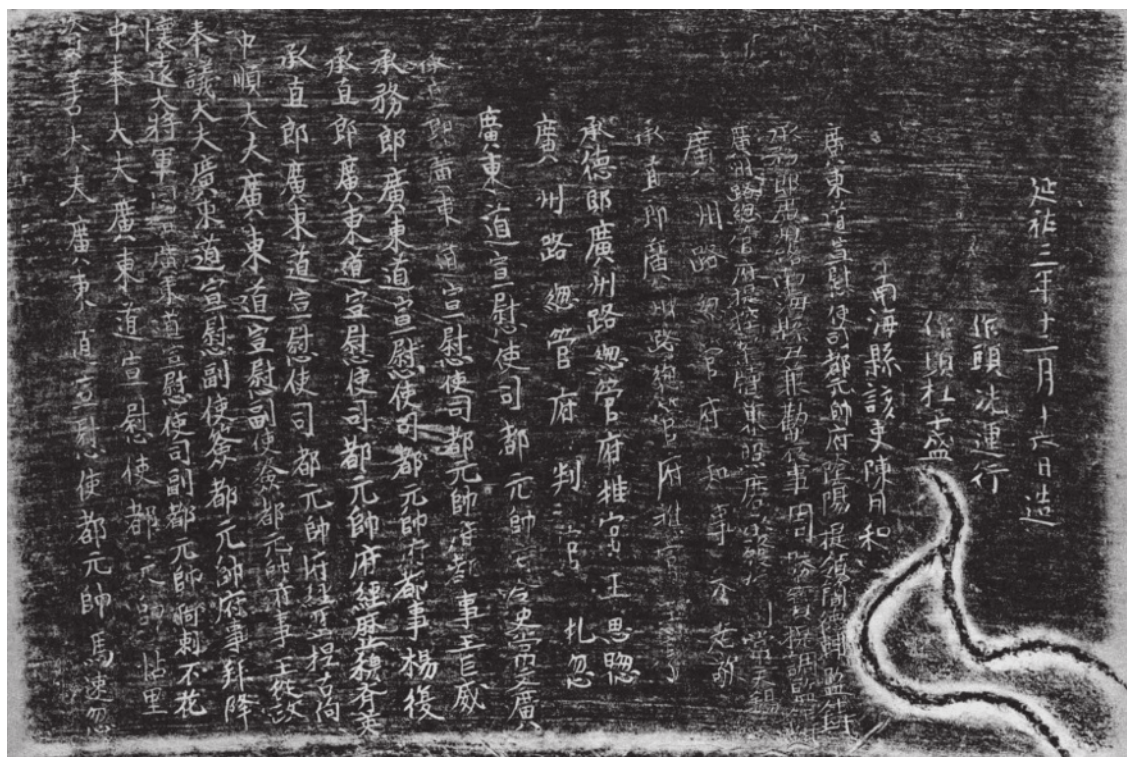 延祐三年十二月十六日造
作頭冼運行
作頭杜子盛
南海縣該吏陳用和
廣東道宣慰使司都元帥府陰陽提領簡德輔監鑄
承務郎廣州路南海縣尹兼勸農事周 提調監鑄
廣州路總管府提控案牘兼照磨 常天錫
廣州路總管府知事
承直郎廣州路總管府推官王
承德郎廣州路總管府推官王思聰
廣州路總管府判官 扎忽
廣東道宣慰使司都元帥府令史常文廣
廣東道宣慰使司都元帥府都事王巨威
承務郎廣東道宣慰使司都元帥府都事楊復
承直郎廣東道宣慰使司都元帥府經歷 穆齊英
承直郎廣東道宣慰使司都元帥府經歷捏古
中順大夫廣東道宣慰副使僉都元帥府事王從政
奉議大夫廣東道宣慰副使僉都元帥府事
懷遠大將軍同知廣東道宣慰使司副都元帥阿剌不花
中奉大夫廣東道宣慰使都元帥怗里
資善大夫廣東道宣慰使都元帥馬速忽